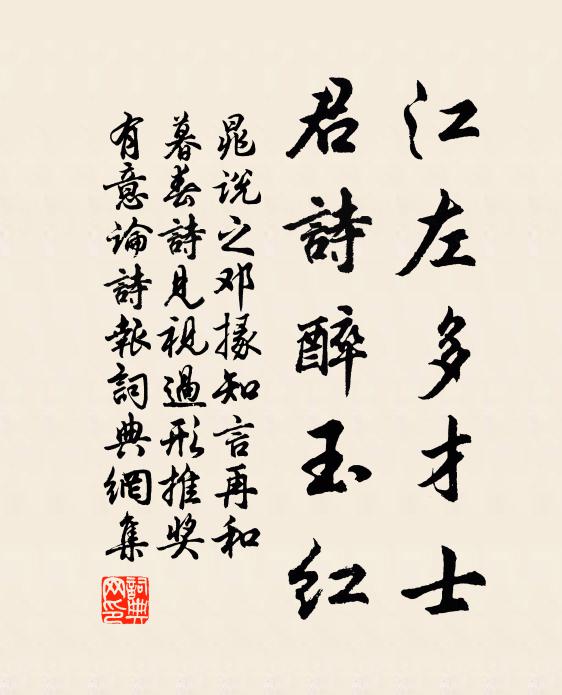 江左多才士
君詩醉玉紅
晁说之邓掾知言再和
暮春詩見視過形推奖
有意論詩報詞典網集
詞典网印